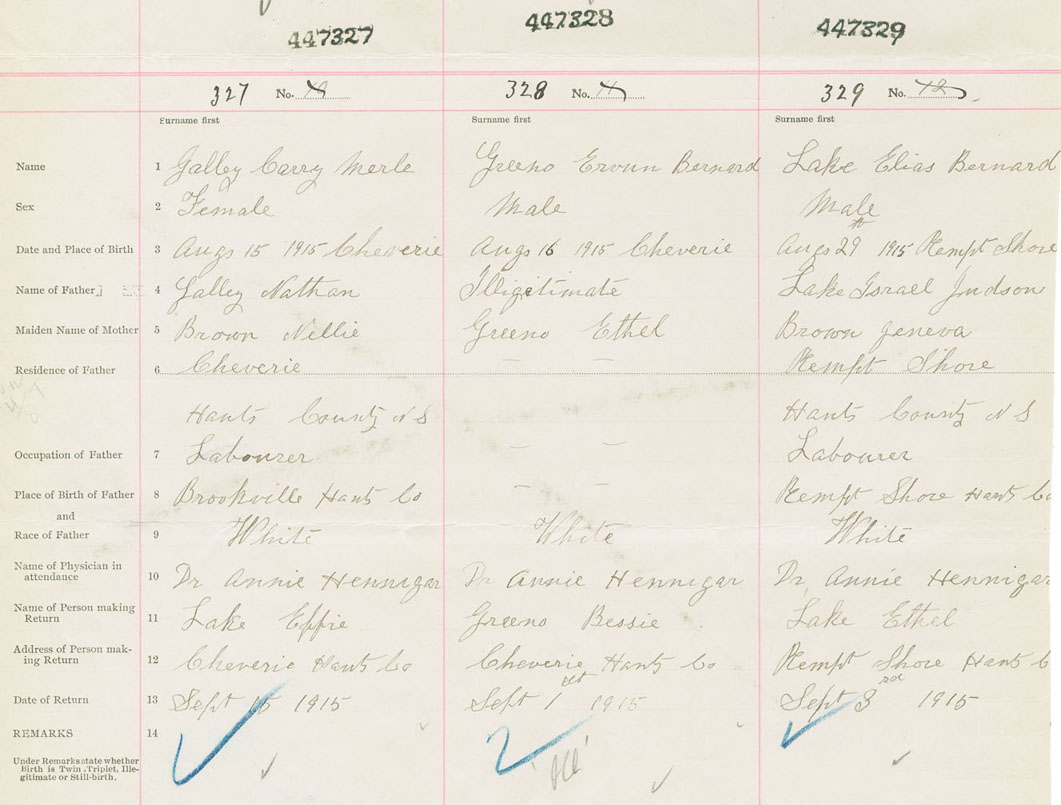 447327 447328 447329
327 No. 328 No. 329 No.
Surname first Surname first Surname first
Name 1 Galley Carry Merle Greeno Ervun Bernard Lake Elias Bernard
Sex 2 Female Male Male
Date and Place of Birth 3 Augs 15 1915 Cheverie Augs 16 1915 Cheverie Augs 29th 1915 Kempt Shore
Name of Father 4 Galley Nathan Illigitimate Lake Israel Judson
Maiden Name of Mother 5 Brown Nellie Greeno Ethel Brown Geneva
Residence of Father 6 Cheverie — — Kempt Shore
Hants County N S Hants County N S
Occupation of Father 7 Labourer — — Labourer
Place of Birth of Father 8 Brookville Hants Co — — Kempt Shore Hants Co
and
Race of Father 9 White White White
Name of Physician in
attendance 10 Dr Annie Hennigar Dr Annie Hennigar Dr Annie Hennigar
Name of Person making
Return 11 Lake Effie Greeno Bessie Lake Ethel
Address of Person mak-
ing Return 12 Cheverie Hants Co Cheverie Hants Co Kempt Shore Hants C
Date of Return 13 Sept 15 1915 Sept 1st 1915 Sept 3rd 1915
REMARKS 14
Under Remarks state whether
Birth is Twin, Triplet, Ille-
gitimate or Still-birth.